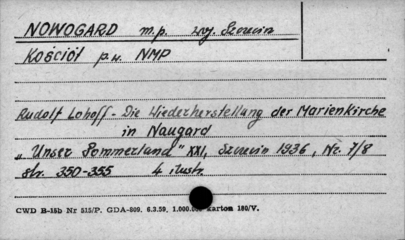 NOWOGARD m.p. woj. Szczecin
Kościół p.w. NMP
Rudolf Lohoff - Die Wiederherstellung der Marienkirche
in Naugard
"Unser Pommerland" XXI, Szczecin 1936, Nr. 7/8
str. 350-355 4 ilustr.
CWD B-15b Nr 515/P. GDA-809. 6.3.59. 1.000.000 karton 180/V.